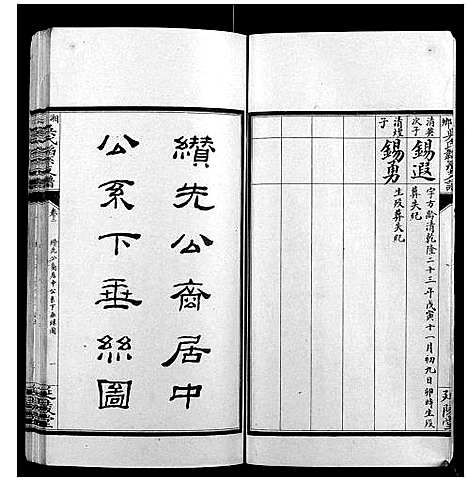 清英次子
錫遐
字方齡清乾隆二十三年戊寅十一月初九日卯時生歿葬失紀
清瑝子
錫勇
生歿葬失紀
延陵堂
纘先公裔居中
公系下垂絲圖
卷三
纘先公裔居中公系下垂絲圖
一
延陵堂